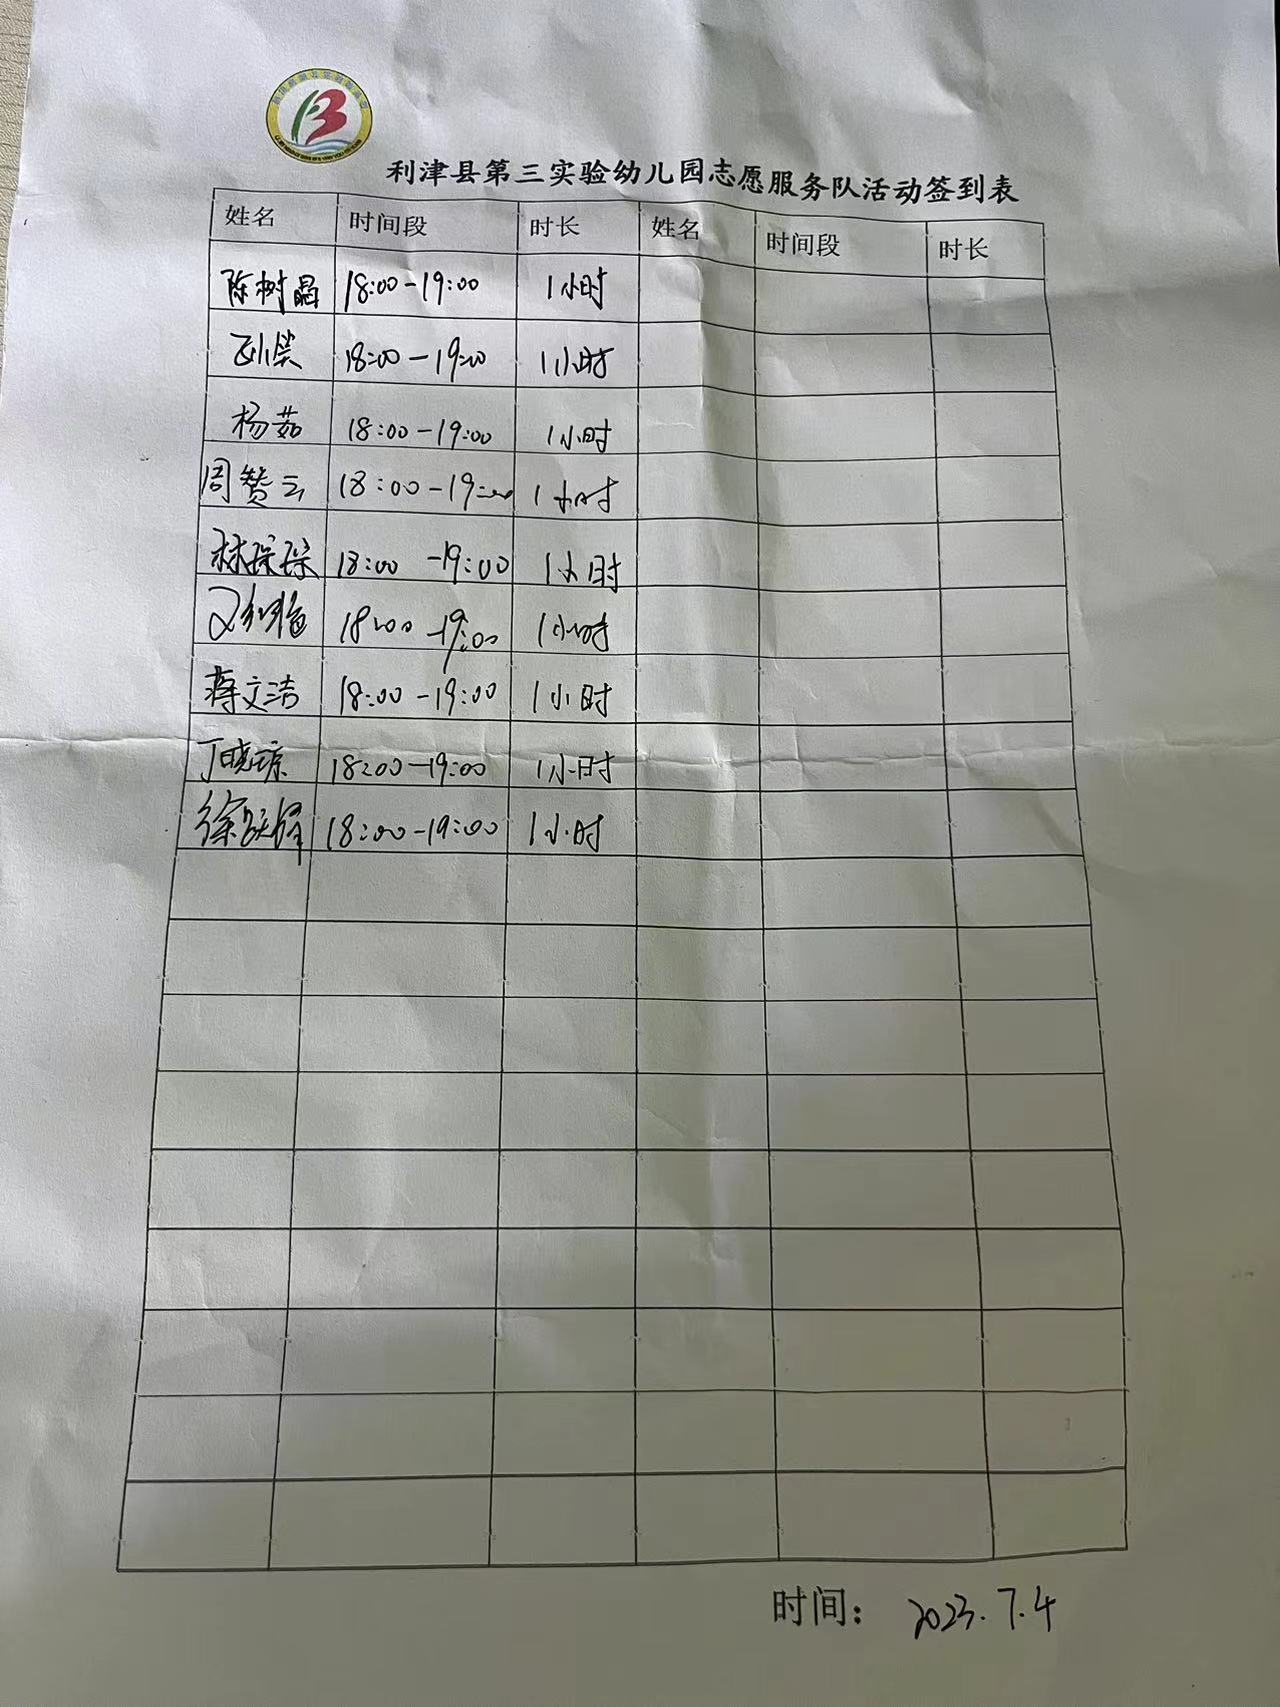 利津县第三实验幼儿园志愿服务队活动签到表
姓名 时间段 时长 姓名 时间段 时长
陈树晶 18:00-19:00 1小时
孙笑 18:00-19:00 1小时
杨茹 18:00-19:00 1小时
周赞云 18:00-19:00 1小时
林琮琮 18:00-19:00 1小时
18:00-19:00 1小时
蒋文洁 18:00-19:00 1小时
丁晓琼 18:00-19:00 1小时
徐跃泽 18:00-19:00 1小时
时间: 2023.7.4